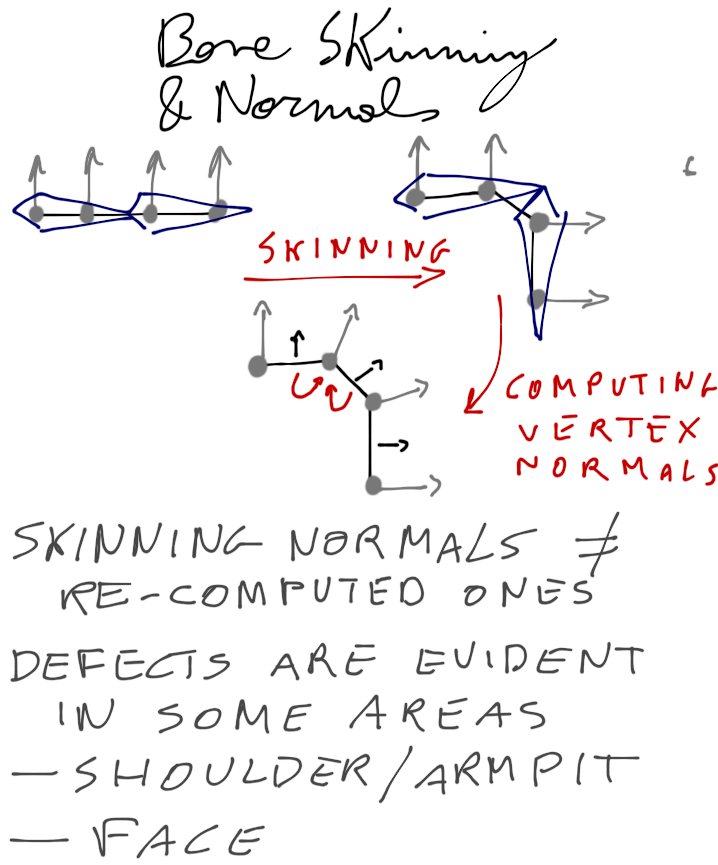 Bone Skinning
& Normals
SKINNING
COMPUTING
VERTEX
NORMALS
SKINNING NORMALS ≠
RE-COMPUTED ONES
DEFECTS ARE EVIDENT
IN SOME AREAS
- SHOULDER/ARMPIT
- FACE